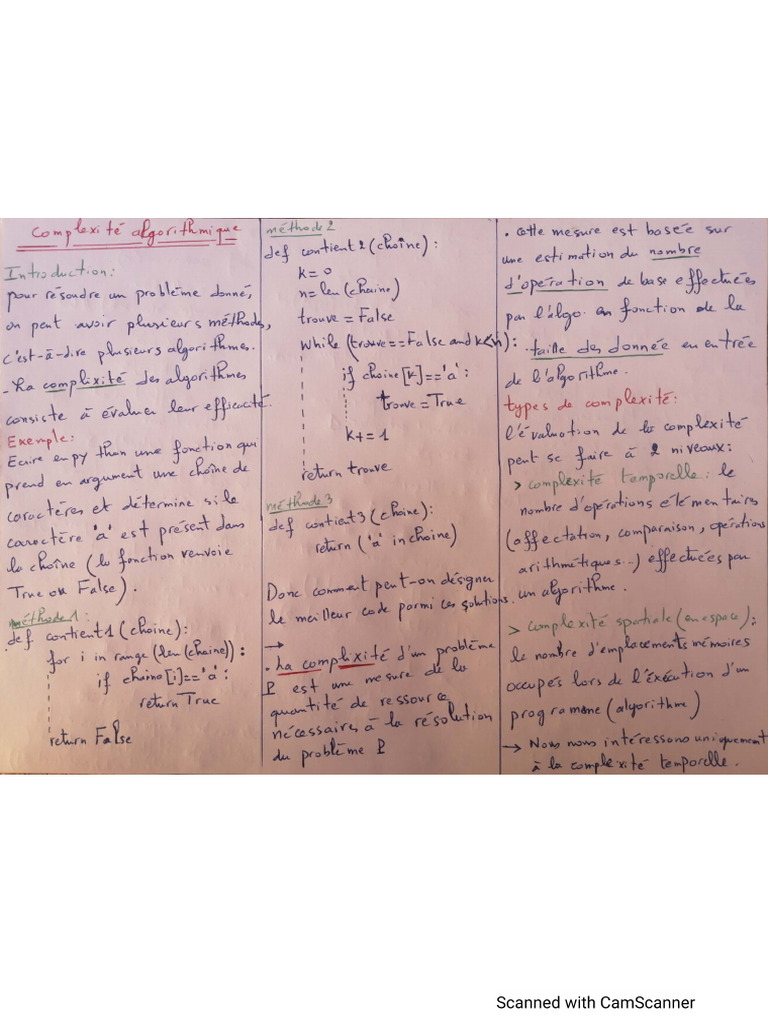 Complexité algorithmique
Introduction:
pour résoudre un problème donné,
on peut avoir plusieurs méthodes,
c'est-à-dire plusieurs algorithmes.
- La complixité des algorithmes
consiste à évaluer leur efficacité.
Exemple:
Ecrire en python une fonction qui
prend en argument une chaîne de
caractères et détermine si le
caractère 'a' est présent dans
la chaîne (la fonction renvoie
True ou False).
méthode 1:
def contient1(chaine):
for i in range(len(chaine)):
if chaine[i]=='a':
return True
return False
méthode 2
def contient2(chaîne):
k=0
n=len(chaine)
trouve=False
while (trouve==False and k<n):
if chaine[k]=='a':
trouve=True
k+=1
return trouve
méthode 3
def contient3(chaine):
return ('a' in chaine)
Donc comment peut-on désigner
le meilleur code parmi ces solutions.
→
. La complixité d'un problème
P est une mesure de la
quantité de ressource
nécessaires à la résolution
du problème P
. Cette mesure est basée sur
une estimation du nombre
d'opération de base effectuées
par l'algo. en fonction de la
taille des donnée en entrée
de l'algorithme.
types de complexité:
l'évaluation de la complexité
peut se faire à 2 niveaux:
> complexité temporelle: le
nombre d'opérations élémentaires
(affectation, comparaison, opérations
arithmétiques...) effectuées par
un algorithme.
> complexité spatiale (en espace):
le nombre d'emplacements mémoires
occupés lors de l'éxécution d'un
programme (algorithme)
→ Nous nous intéressons uniquement
à la complexité temporelle.
Scanned with CamScanner